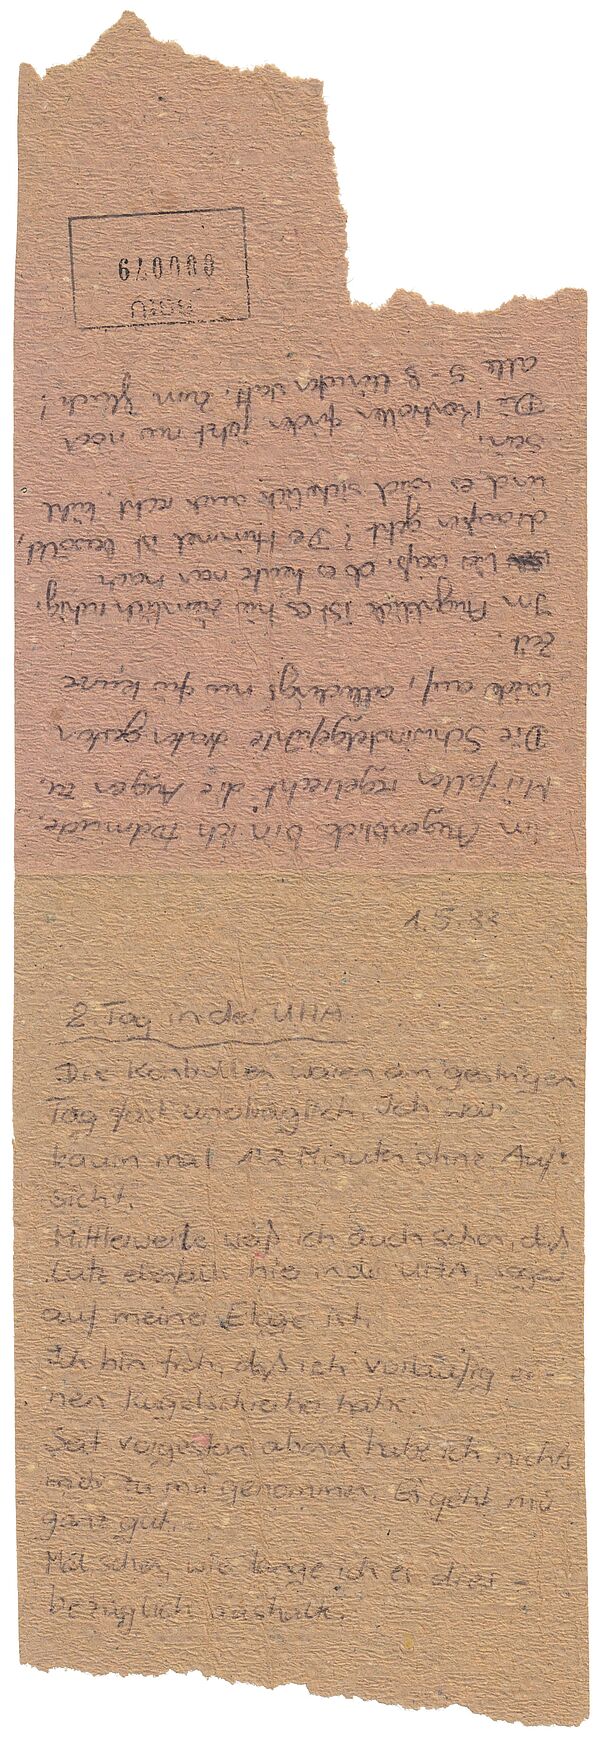 1.5.83
2. Tag in der UHA
Die Kontrollen waren am gestrigen
Tag fast unerträglich. Ich war
kaum mal 1-2 Minuten ohne Auf-
sicht.
Mittlerweile weiß ich auch schon, daß
Lutz ebenfalls hier in der UHA, sogar
auf meiner Etage ist.
Ich bin froh, daß ich vorläufig ei-
nen Kugelschreiber habe.
Seit vorgestern abend habe ich nichts
mehr zu mir genommen. Es geht mir
ganz gut.
Mal sehen, wie lange ich es dies-
bezüglich aushalte.
Im Augenblick bin ich todmüde.
Mir fallen regelrecht die Augen zu.
Die Schwindelgefühle traten gestern
wieder auf, allerdings nur für kurze
Zeit.
Im Augenblick ist es hier ziemlich ruhig.
Wer weiß, ob es heute nach
draußen geht? Der Himmel ist bewölkt,
und es wird sicherlich auch recht kühl
sein.
Die Kontrollen finden jetzt nur noch
alle 5-8 Minuten statt, zum Glück!
BStU
000079